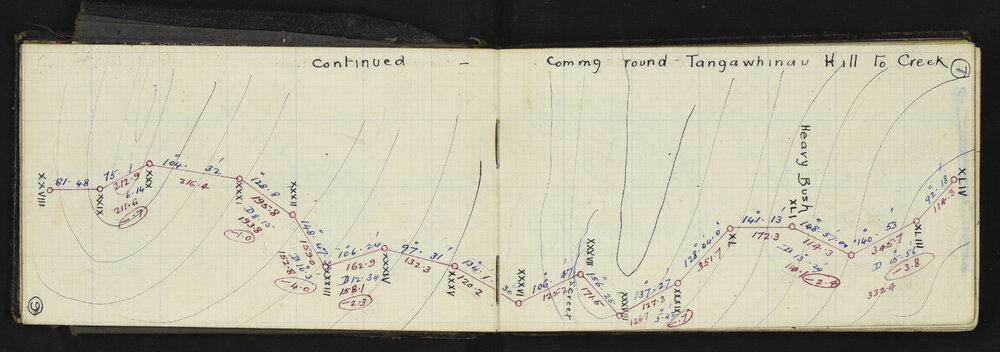 Continued — Commg round Tangawhinau Hill to Creek
7
XXVIII
81. 48
XXIX
75. 1
212.9
6.14
211.6
XXX
104. 32
216.4
XXXI
128. 8
195.8
D 8.15
193.8
-1.0
XXXII
159.0
D 16.3
152.8
-4.0
XXXIII
106. 24
162.9
D 12.34
158.1
-2.3
XXXIV
97. 31
132.3
XXXV
134. 1
120.2
XXXVI
106. 47
125.2
Creek
XXXVII
156. 25
171.6
XXXVIII
137. 27
127.3
126.7
XXXIX
128. 04. 0
351.7
XL
141. 13
172.3
XLI
Heavy Bush
114.3
-2.4
140. 53
345.7
D 15.56
-3.8
332.4
XLIII
92. 18
114.3
XLIV